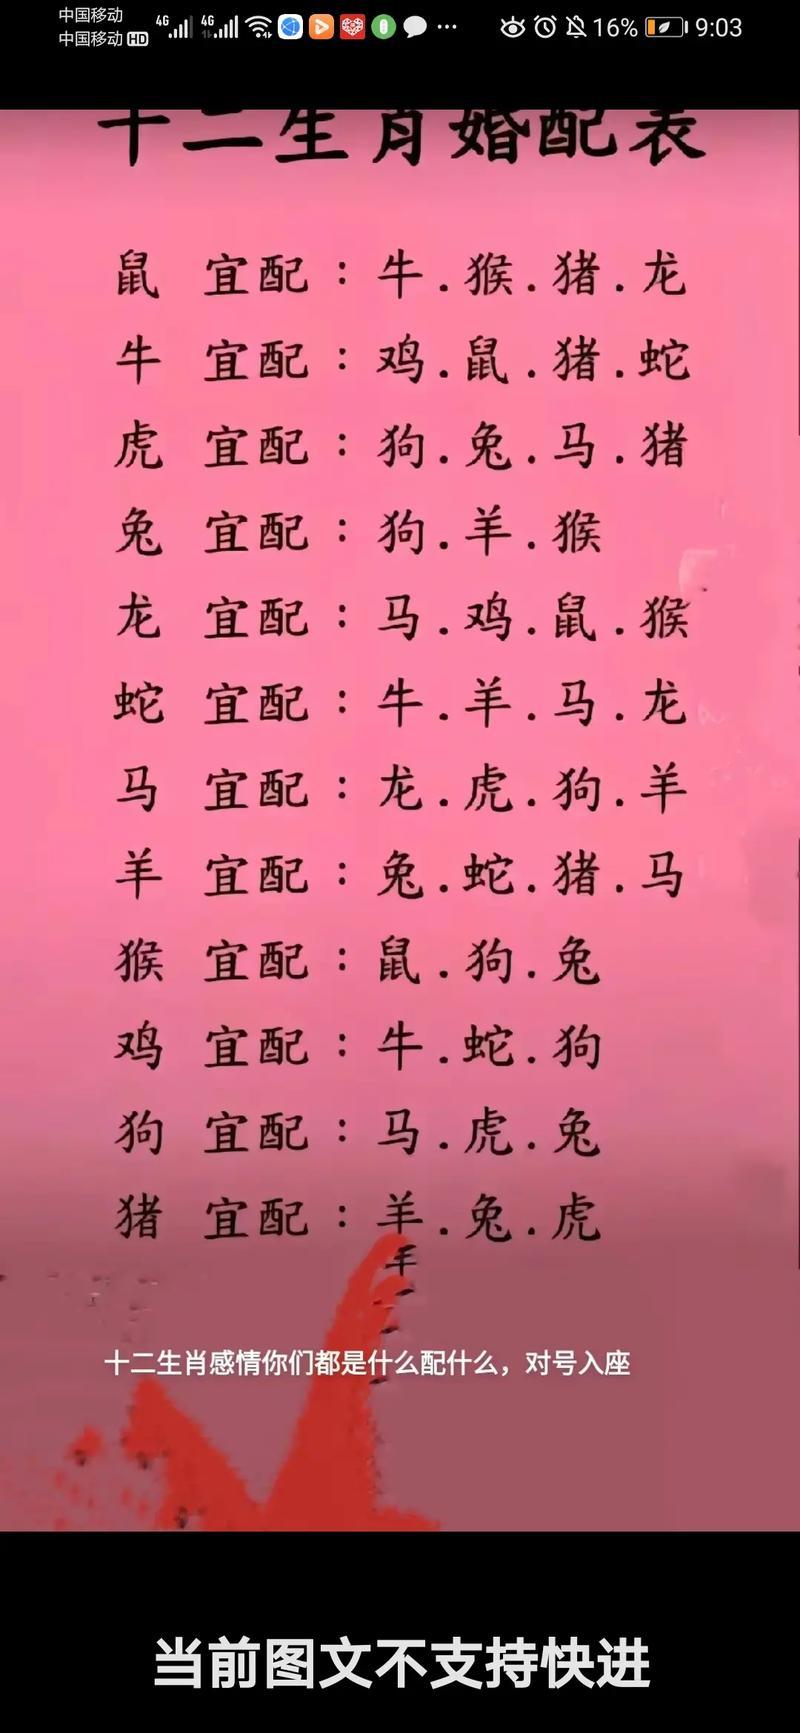 中国移动
中国移动 HD 4G 4G 16% 9:03
十二生肖婚配表
鼠 宜配：牛.猴.猪.龙
牛 宜配：鸡.鼠.猪.蛇
虎 宜配：狗.兔.马.猪
兔 宜配：狗.羊.猴
龙 宜配：马.鸡.鼠.猴
蛇 宜配：牛.羊.马.龙
马 宜配：龙.虎.狗.羊
羊 宜配：兔.蛇.猪.马
猴 宜配：鼠.狗.兔
鸡 宜配：牛.蛇.狗
狗 宜配：马.虎.兔
猪 宜配：羊.兔.虎
十二生肖感情你们都是什么配什么，对号入座
当前图文不支持快进